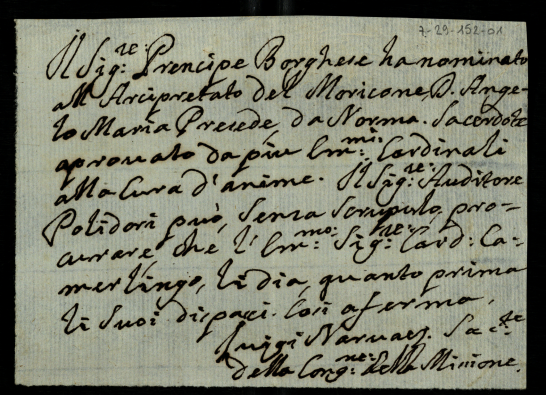 7-29-152-01
Il Sig:re: Prencipe Borghese ha nominato
all Arcipretato del Moricone, D. Ange-
lo Maria Presede, da Norma. Sacerdote
aprouato da più Em:mi: Cardinali
alla Cura d'anime. Il Sig:re: Auditore
Polidori può, senza scrupulo, pro-
currare, che l'Em:mo: Sig:re: Card: Ca-
merlingo, li dia, quanto prima
li suoi dispaci. Cosi aferma,
Luigi Naruaez. Sa:te
della Cong:ne: della Missione.